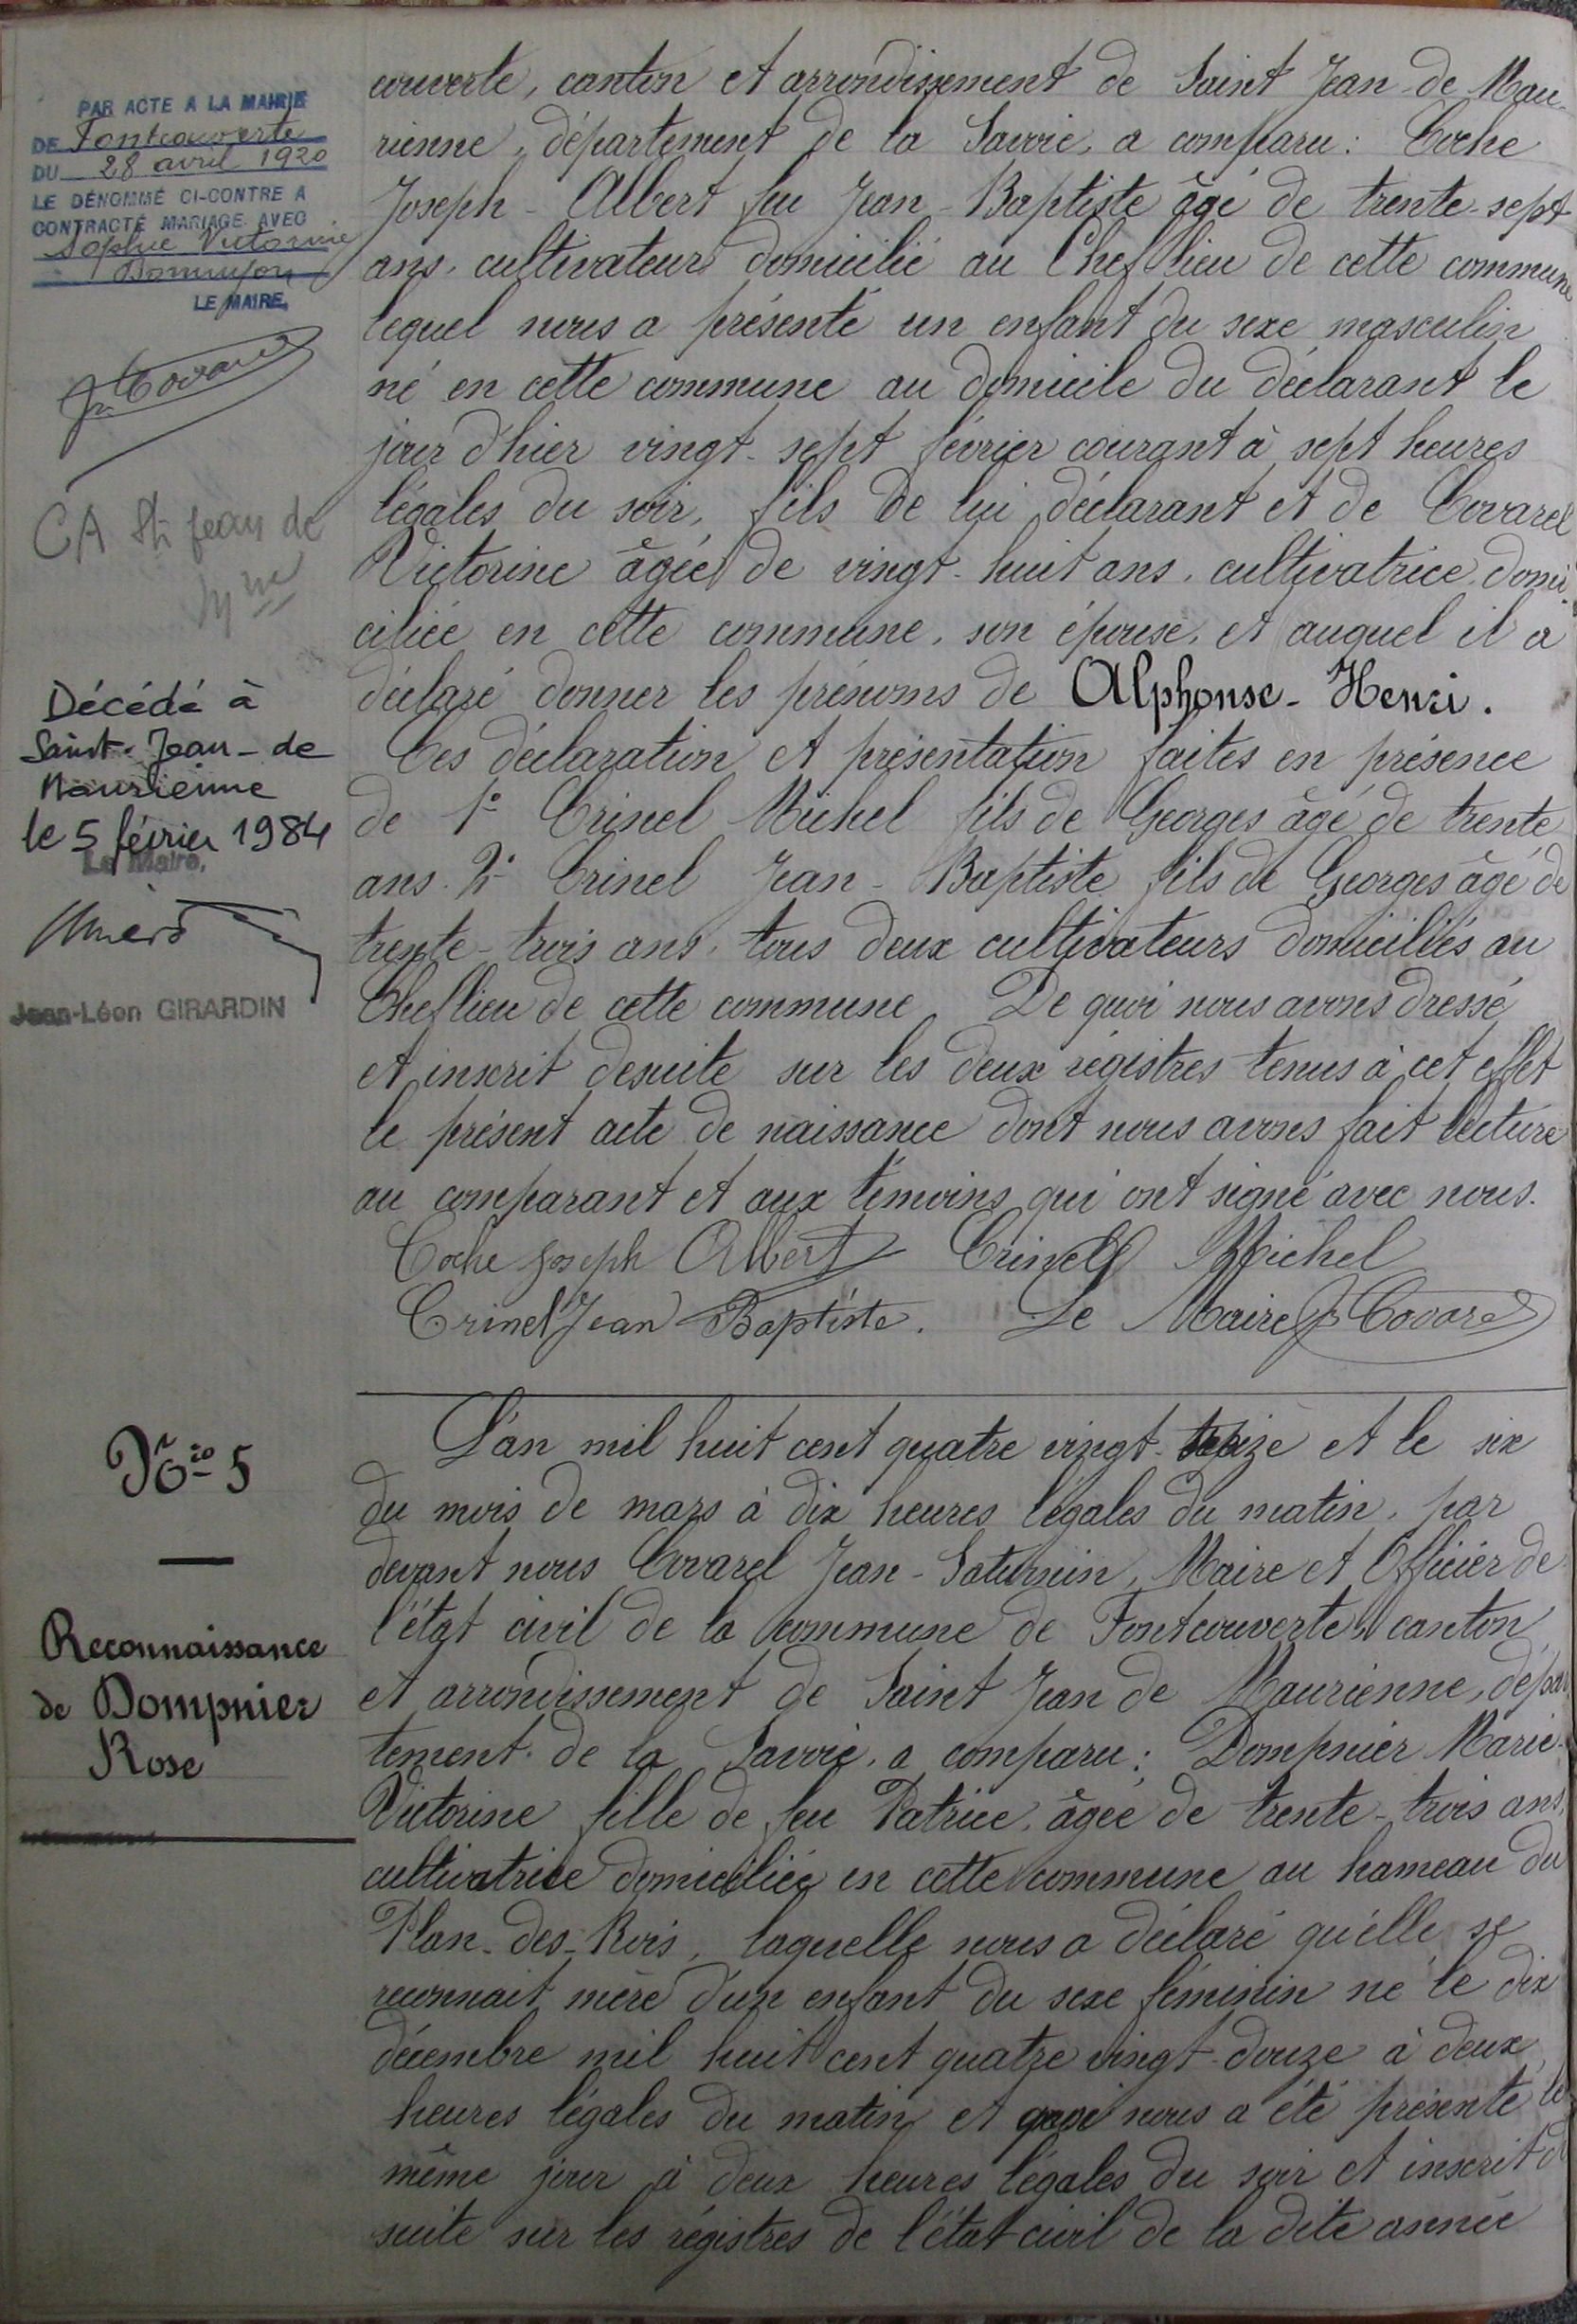 PAR ACTE A LA MAIRIE
DE Fontcouverte
DU 28 avril 1920
LE DÉNOMMÉ CI-CONTRE A
CONTRACTÉ MARIAGE AVEC
Sophie Victorine
LE MAIRE,
CA St Jean de
Décédé à
Saint-Jean-de
Maurienne
le 5 février 1984
Le Maire,
Jean-Léon GIRARDIN
couverte, canton et arrondissement de Saint Jean de Mau-
rienne, département de la Savoie, a comparu: Coche
Joseph-Albert feu Jean-Baptiste âgé de trente-sept
ans, cultivateur domicilié au Chef lieu de cette commune
lequel nous a présenté un enfant du sexe masculin
né en cette commune au domicile du déclarant le
jour d'hier vingt-sept février courant à sept heures
légales du soir, fils de lui déclarant et de Covarel
Victorine âgée de vingt-huit ans, cultivatrice, domi-
ciliée en cette commune, son épouse, et auquel il a
déclaré donner les prénoms de Alphonse-Henri.
Ces déclaration et présentation faites en présence
de 1° Crinel Michel fils de Georges âgé de trente
ans. 2° Crinel Jean-Baptiste fils de Georges âgé de
trente-trois ans, tous deux cultivateurs domiciliés au
Chef lieu de cette commune. De quoi nous avons dressé
et inscrit desuite sur les deux régistres tenus à cet effet
le présent acte de naissance dont nous avons fait lecture
au comparant et aux témoins qui ont signé avec nous.
Coche Joseph Albert Crinel Michel
Crinel Jean Baptiste. Le Maire J. Covarel
N.ro 5
Reconnaissance
de Dompnier
Rose
L'an mil huit cent quatre vingt-treize et le six
du mois de mars à dix heures légales du matin, par
devant nous Covarel Jean-Saturnin, Maire et Officier de
l'état civil de la commune de Fontcouverte, canton
et arrondissement de Saint Jean de Maurienne, dépar
tement de la Savoie, a comparu: Dompnier Marie-
Victorine fille de feu Patrice, âgée de trente-trois ans,
cultivatrice domiciliée en cette commune au hameau du
Plan-des-Rois, laquelle nous a déclaré qu'elle se
reconnait mère d'un enfant du sexe féminin né le dix
décembre mil huit cent quatre vingt-douze à deux
heures légales du matin et qui nous a été présenté le
même jour à deux heures légales du soir et inscrit de
suite sur les régistres de l'état civil de la dite année